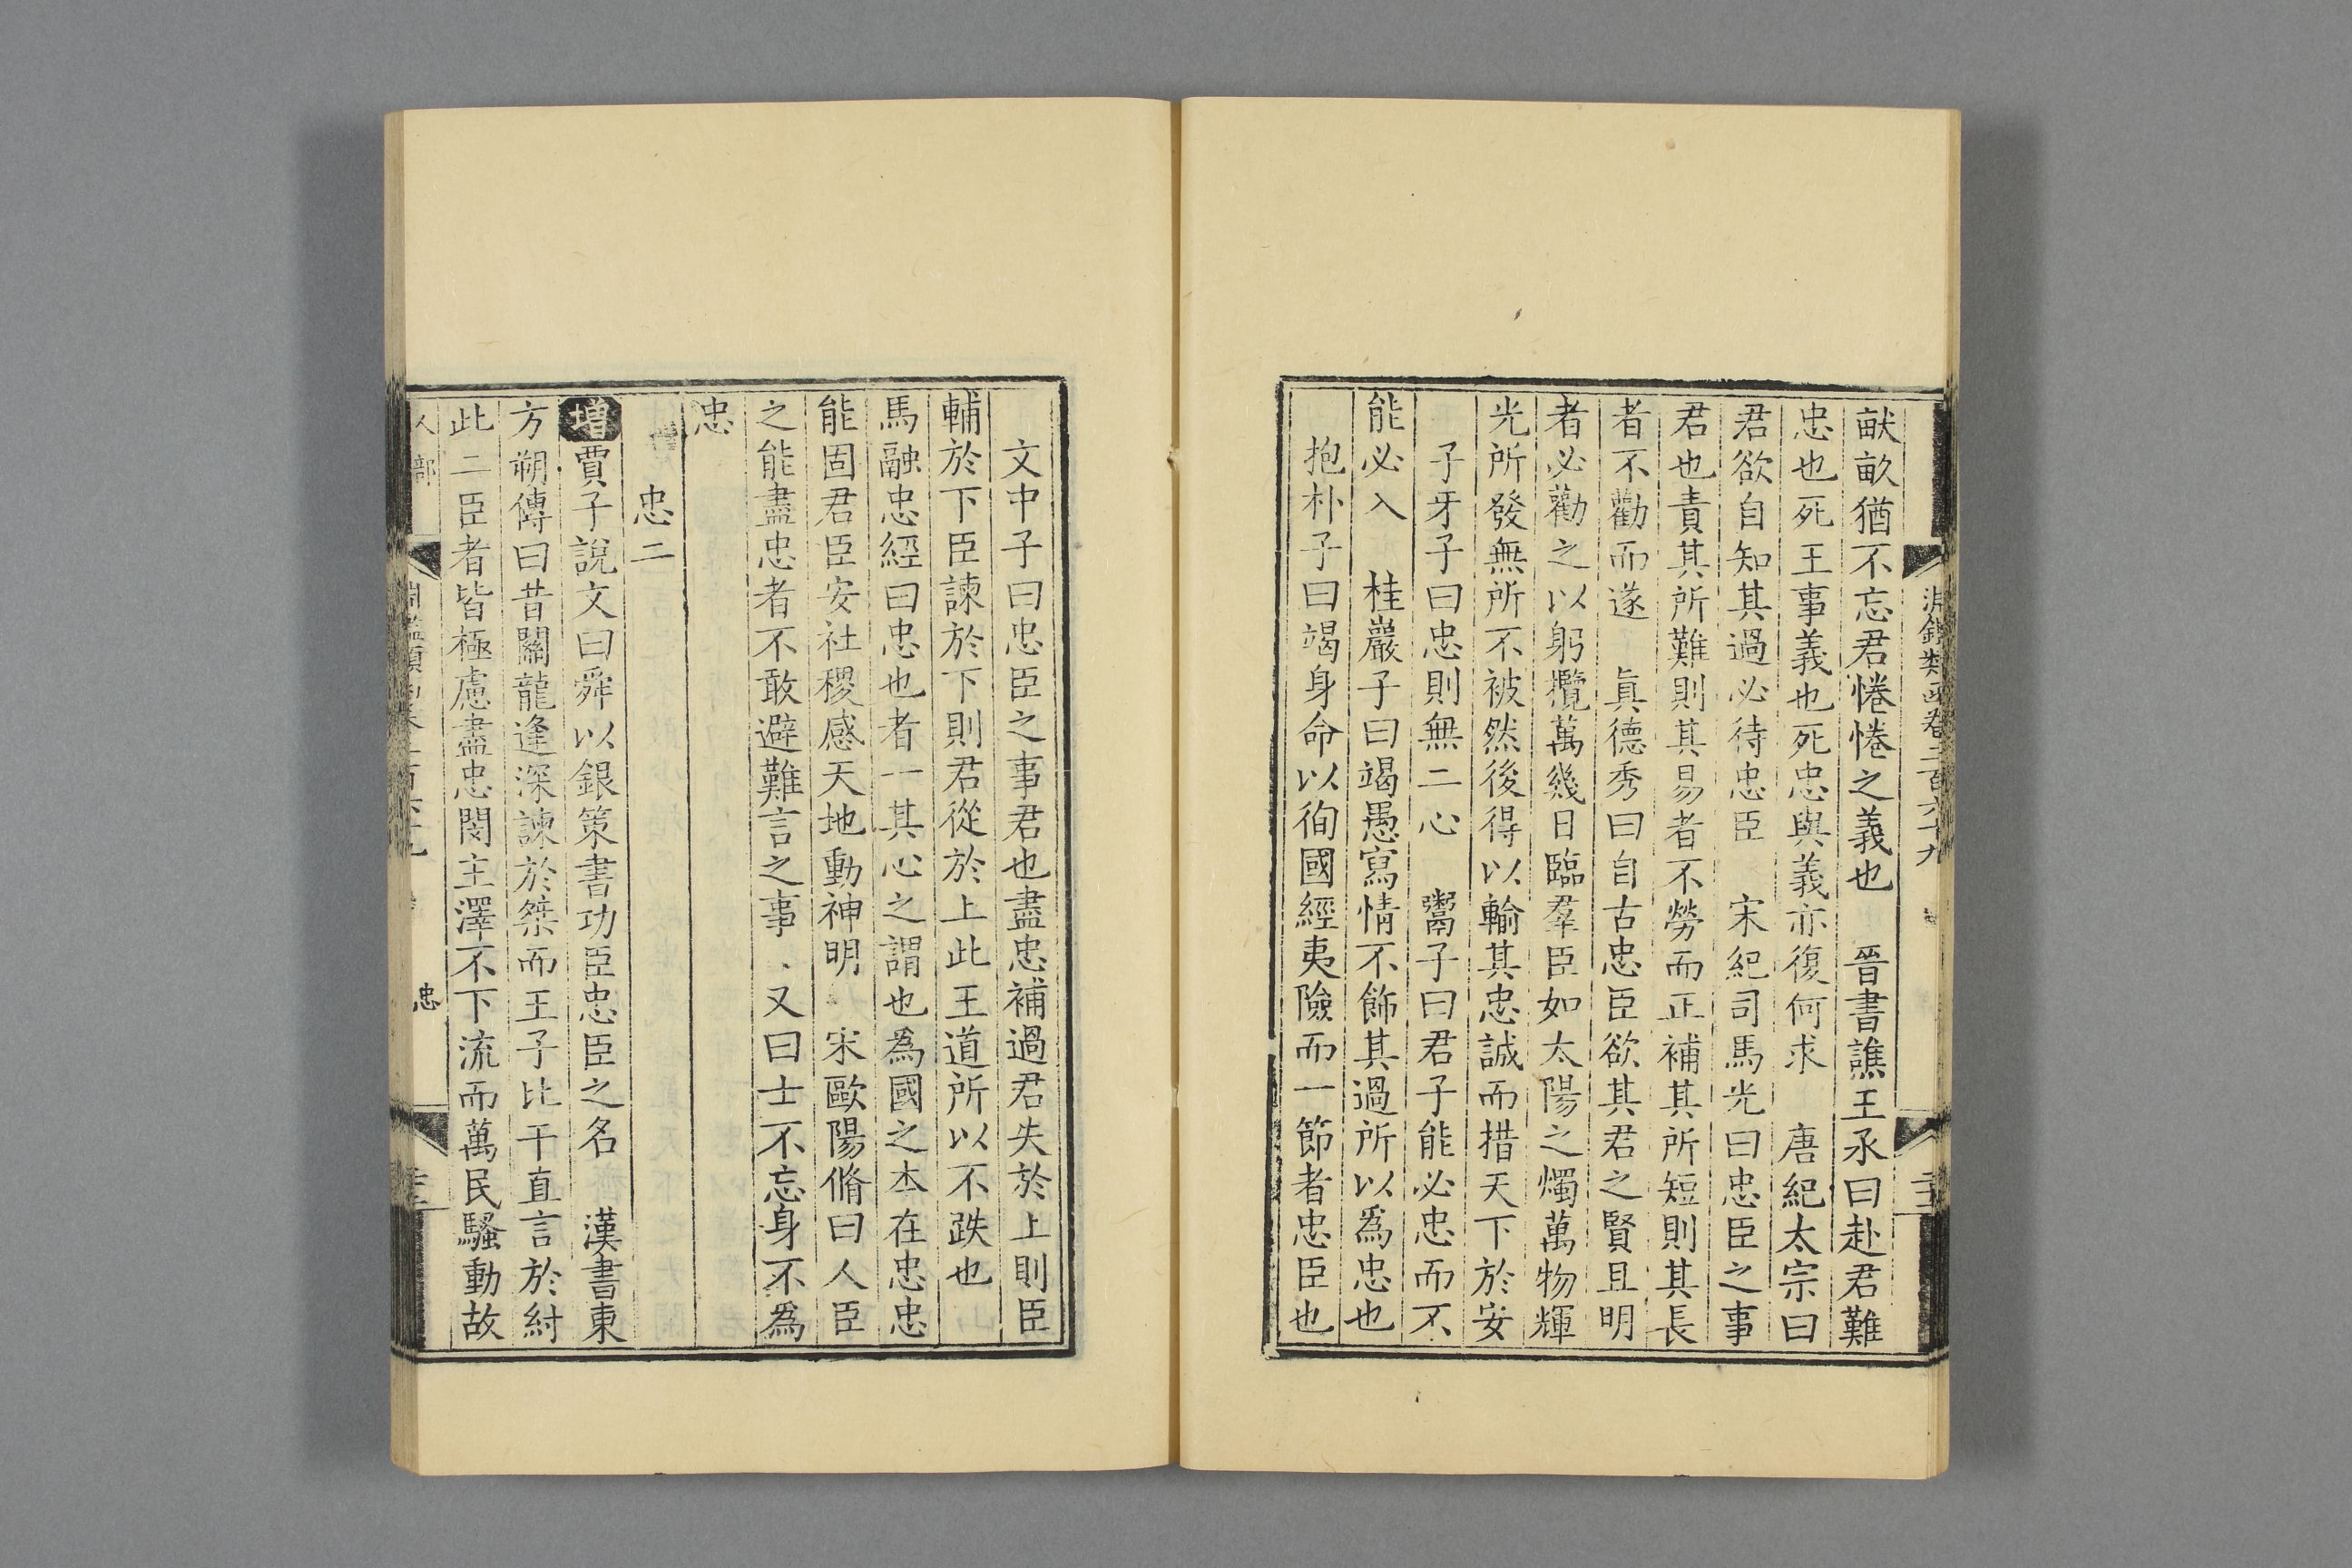 淵鑑類函卷二百六十九
畎畝猶不忘君惓惓之義也　晉書譙王承曰赴君難
忠也死王事義也死忠與義亦復何求　唐紀太宗曰
君欲自知其過必待忠臣　宋紀司馬光曰忠臣之事
君也責其所難則其易者不勞而正補其所短則其長
者不勸而遂　眞德秀曰自古忠臣欲其君之賢且明
者必勸之以躬攬萬幾日臨羣臣如太陽之燭萬物輝
光所發無所不被然後得以輸其忠誠而措天下於安
子牙子曰忠則無二心　鬻子曰君子能必忠而不
能必入　桂巖子曰竭愚寫情不飾其過所以爲忠也
抱朴子曰竭身命以徇國經夷險而一節者忠臣也
文中子曰忠臣之事君也盡忠補過君失於上則臣
輔於下臣諫於下則君從於上此王道所以不跌也
馬融忠經曰忠也者一其心之謂也爲國之本在忠忠
能固君臣安社稷感天地動神明　宋歐陽脩曰人臣
之能盡忠者不敢避難言之事　又曰士不忘身不爲
忠
忠二
增賈子說文曰舜以銀策書功臣忠臣之名　漢書東
方朔傳曰昔關龍逢深諫於桀而王子比干直言於紂
此二臣者皆極慮盡忠閔主澤不下流而萬民騷動故
人部　忠